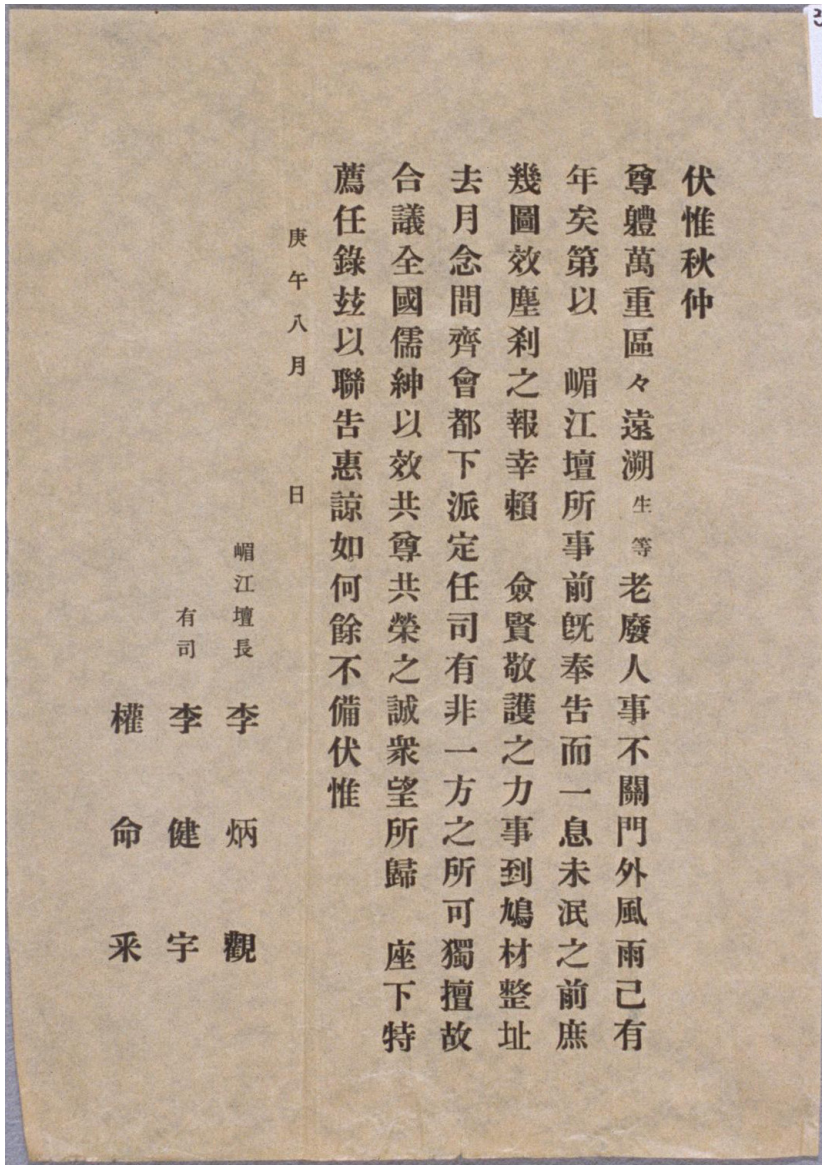 伏惟秋仲
尊軆萬重區々遠溯生等老廢人事不關門外風雨己有
年矣第以 嵋江壇所事前旣奉告而一息未泯之前庶
幾圖效塵刹之報幸賴 僉賢敬護之力事到鳩材整址
去月念間齊會都下派定任司有非一方之所可獨擅故
合議全國儒紳以效共尊共榮之誠衆望所歸 座下特
薦任錄玆以聯告惠諒如何餘不備伏惟
庚午八月 日
嵋江壇長 李炳觀
有司 李健宇
權命采